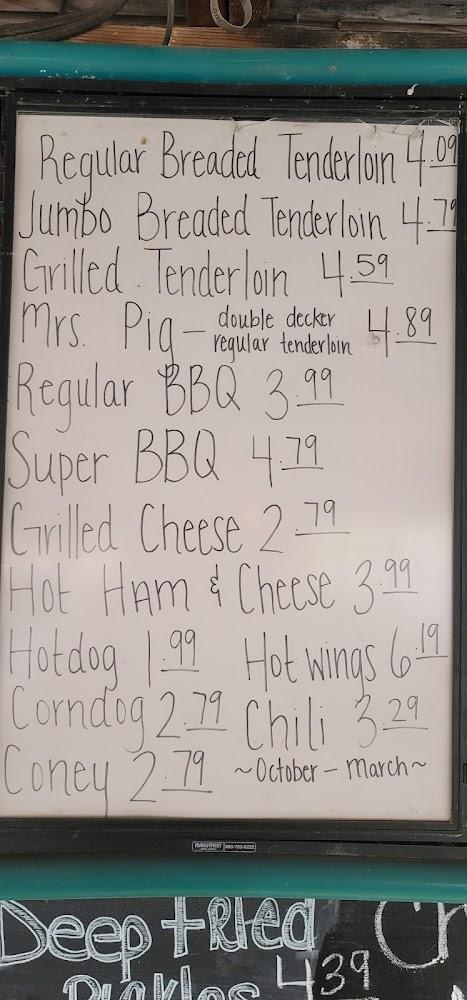 Regular Breaded Tenderloin 4.09
Jumbo Breaded Tenderloin 4.79
Grilled Tenderloin 4.59
Mrs. Pig - double decker regular tenderloin 4.89
Regular BBQ 3.99
Super BBQ 4.79
Grilled Cheese 2.79
Hot Ham & Cheese 3.99
Hotdog 1.99 Hot wings 6.19
Corndog 2.79 Chili 3.29
Coney 2.79 ~October - March~
Deep fried
Pickles 4.39